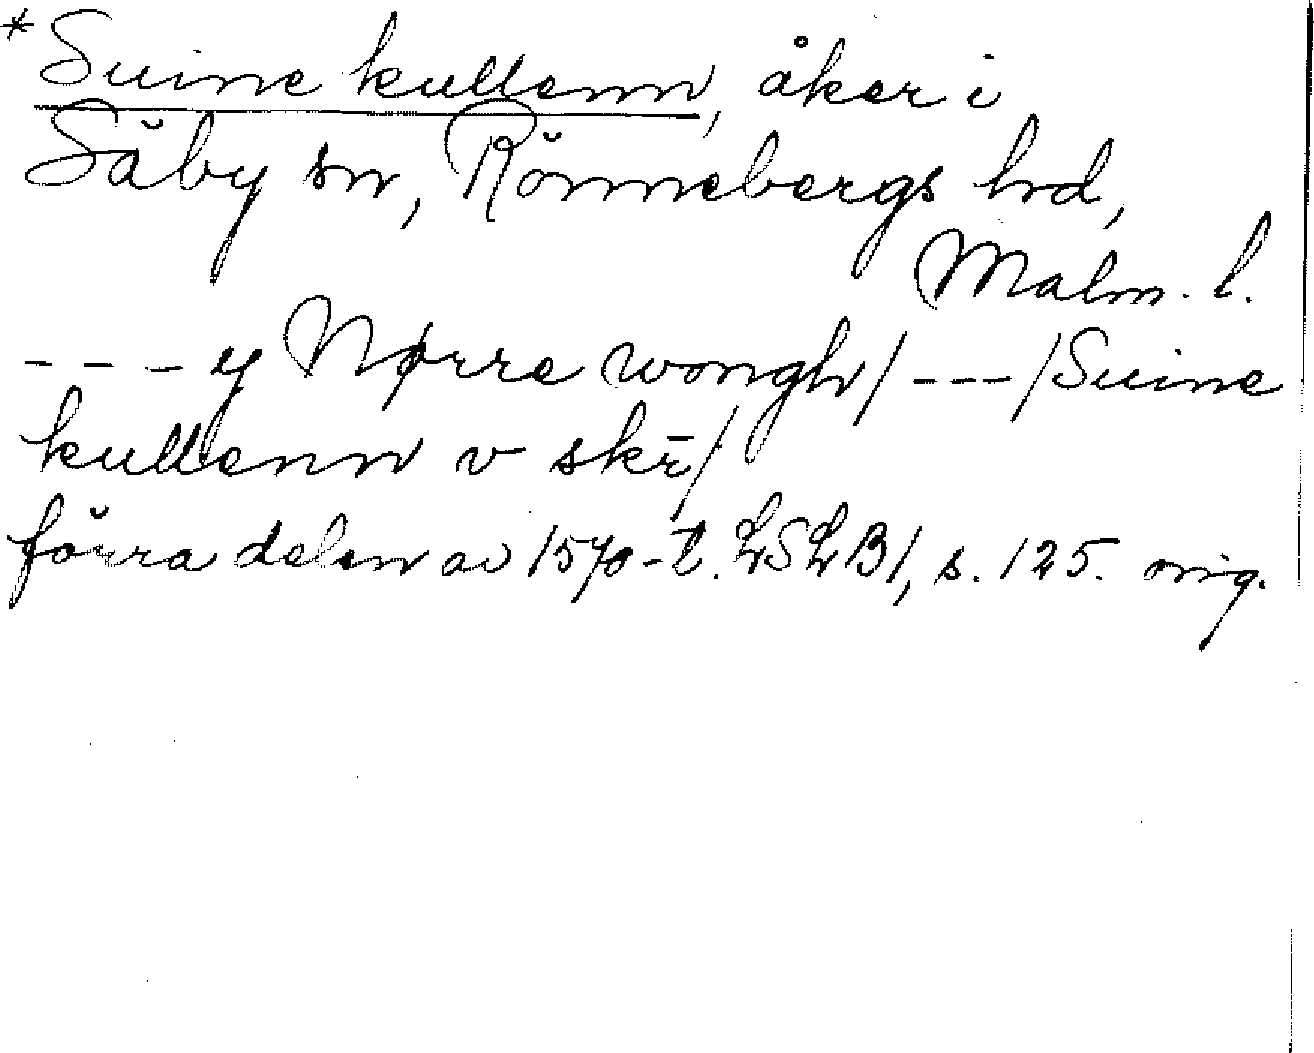 *Suine kullenn, åker i
Säby sn, Rönnebergs hd,
Malm. l.
- - - y Nørre wongh/ --- /Suine
kullenn v skr̄/
förra delen av 1570-t. LSLB1, s. 125. orig.